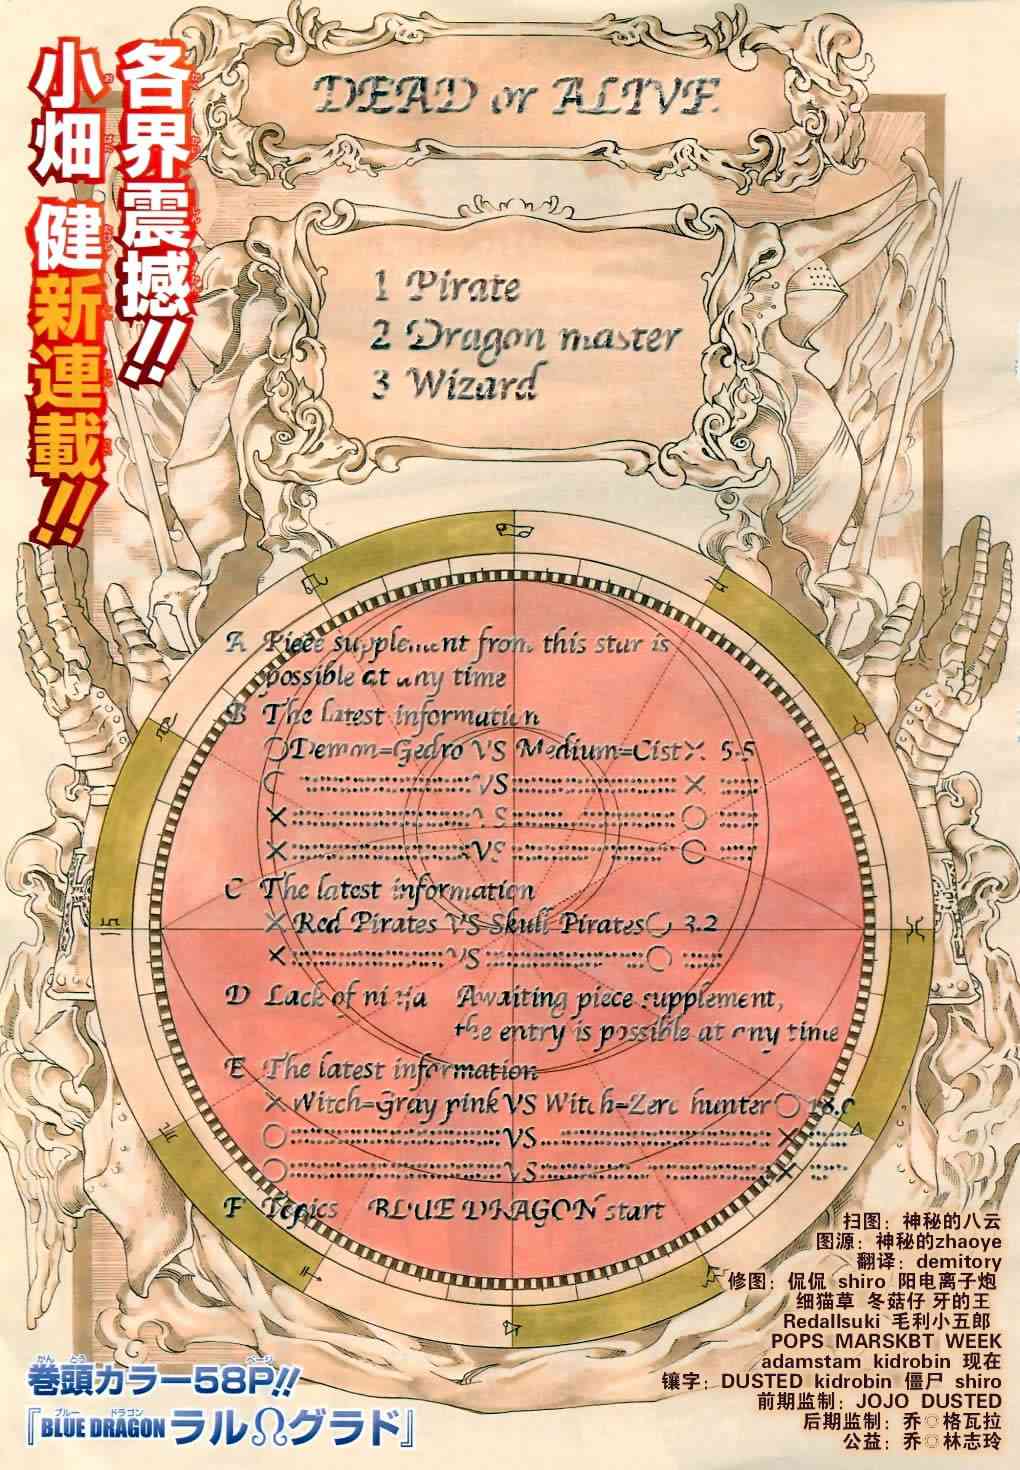 各界震撼!!
小畑 健新連載!!
DEAD or ALIVE
1 Pirate
2 Dragon master
3 Wizard
A Piece supplement from this star is
possible at any time
B The latest information
○Demon=Gedro VS Medium=Cist× 5.5
○ VS ×
× VS ○
× VS ○
C The latest information
×Red Pirates VS Skull Pirates○ 3.2
× VS ○
D Lack of ninja Awaiting piece supplement,
the entry is possible at any time
E The latest information
×Witch=Gray pink VS Witch=Zero hunter○
○ VS ×
○ VS ×
F Topics BLUE DRAGON start
扫图：神秘的八云
图源：神秘的zhaoye
翻译：demitory
修图：侃侃 shiro 阳电离子炮
细猫草 冬菇仔 牙的王
Redallsuki 毛利小五郎
POPS MARSKBT WEEK
adamstam kidrobin 现在
镶字：DUSTED kidrobin 僵尸 shiro
前期监制：JOJO DUSTED
后期监制：乔◌格瓦拉
公益：乔◌林志玲
巻頭カラー58P!!
『BLUE DRAGON ラルΩグラド』